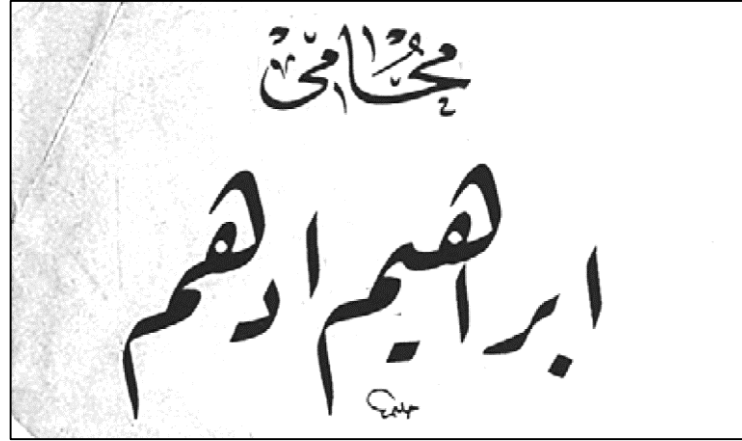 محامى
ابراهيم ادهم